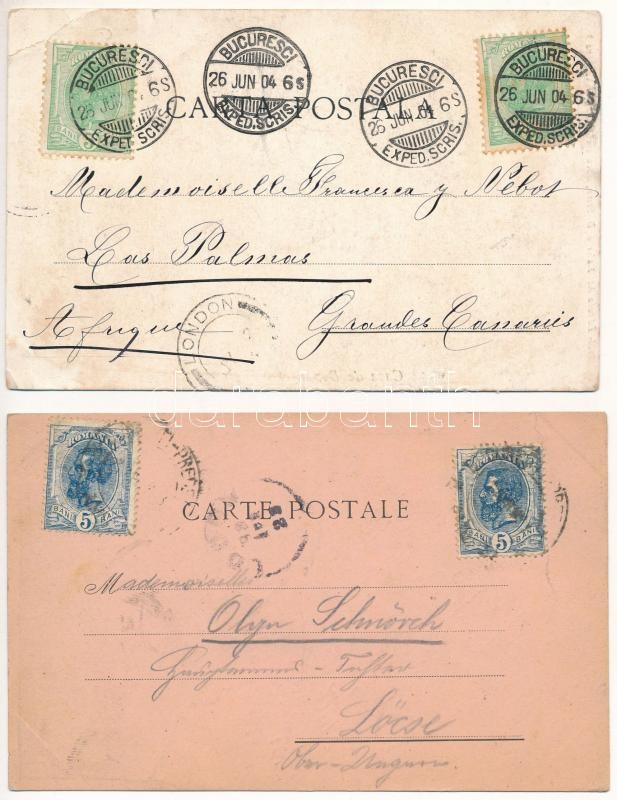 ROMANIA
BANI 5
BUCURESCI
26 JUN 04 6S
EXPED. SCRIS.
BUCURESCI
26 JUN 04 6S
EXPED. SCRIS.
BUCURESCI
26 JUN 04 6S
EXPED. SCRIS.
BUCURESCI
26 JUN 04 6S
EXPED. SCRIS.
CARTA POSTALA
Mademoiselle Francesca y Nebot
Las Palmas
Afrique Grandes Canaries
LONDON
darabanth
ROMANIA
BANI 5 BANI
ROMANIA
BANI 5 BANI
CARTE POSTALE
Mademoiselle
Olga Schmörch
Hauptmanns-Tochter
Löcse
Ober-Ungarn